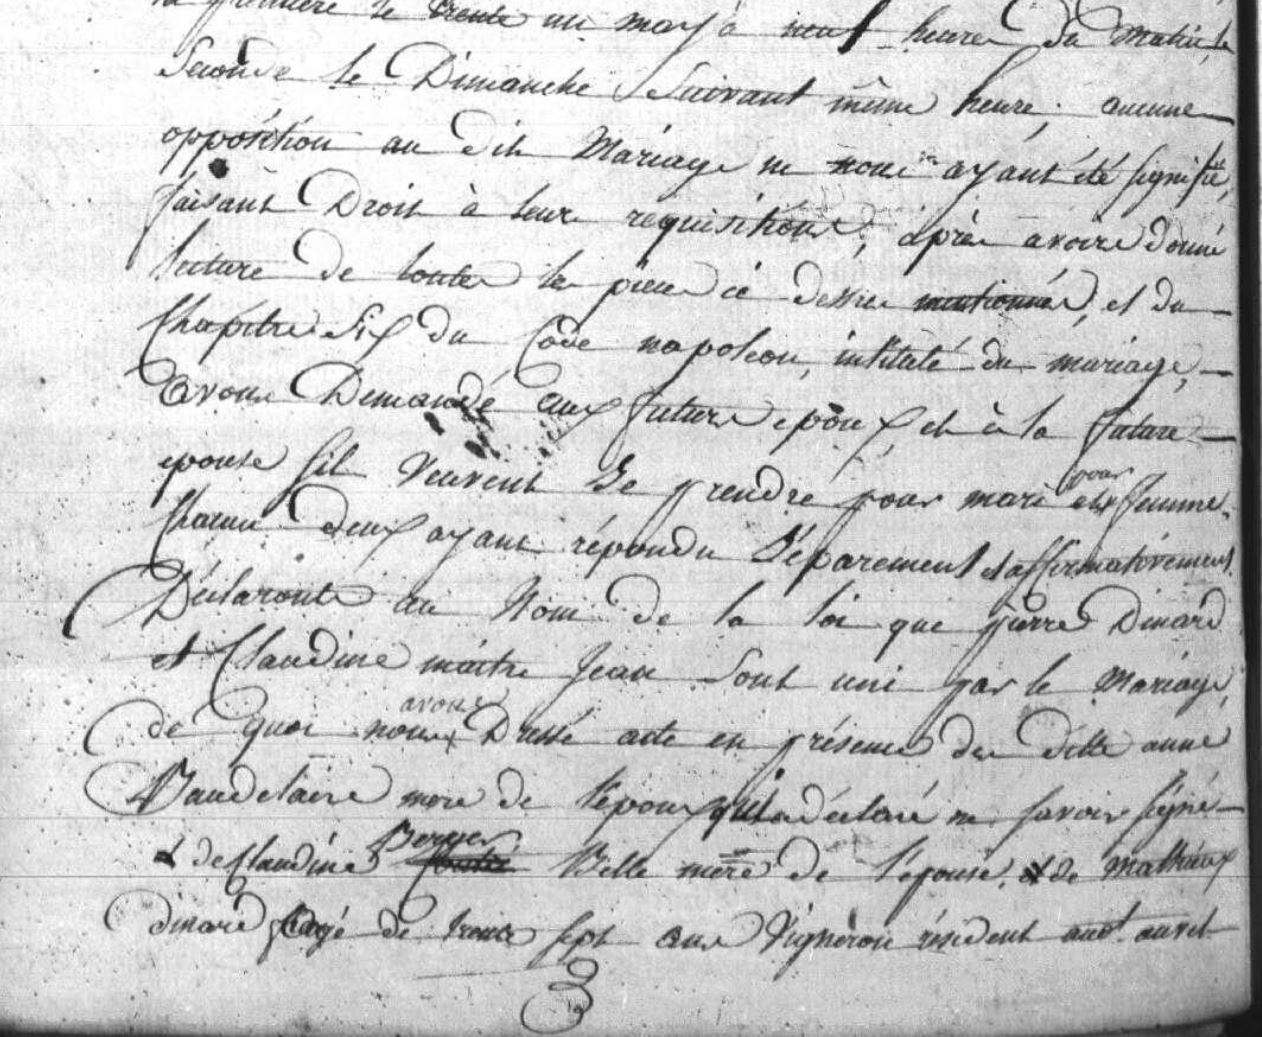 la premiere le trente un may à neuf heures du matin, la
Seconde le Dimanche Suivant même heure; aucune
opposition au dit Mariage ne nous ayant été signifié,
faisant Droit à leurs requisitions, après avoire donné
lecture de toutes les pieces ci dessus mentionnés, et du
Chapitre Six du Code napoleon, intitulé du mariage,
Avons Demandé aux futurs epoux, et à la future
epouse sil veuvent Se prendre pour mari et pour femme,
Chacun deux ayant répondu Séparement et affirmativement
Déclarons au Nom de la loi que pierre Dinard
et Claudine maitre Jean Sont uni par le Mariage,
de quoi nous avons Dressé acte en présence des ditte anne
Baudelaire mere de l'epoux qui a déclaré ne savoir signé
& de Claudine Berger Belle mere de l'épouse, & de Mathieux
dinard agé de trente sept ans Vigneron résident audt.
3